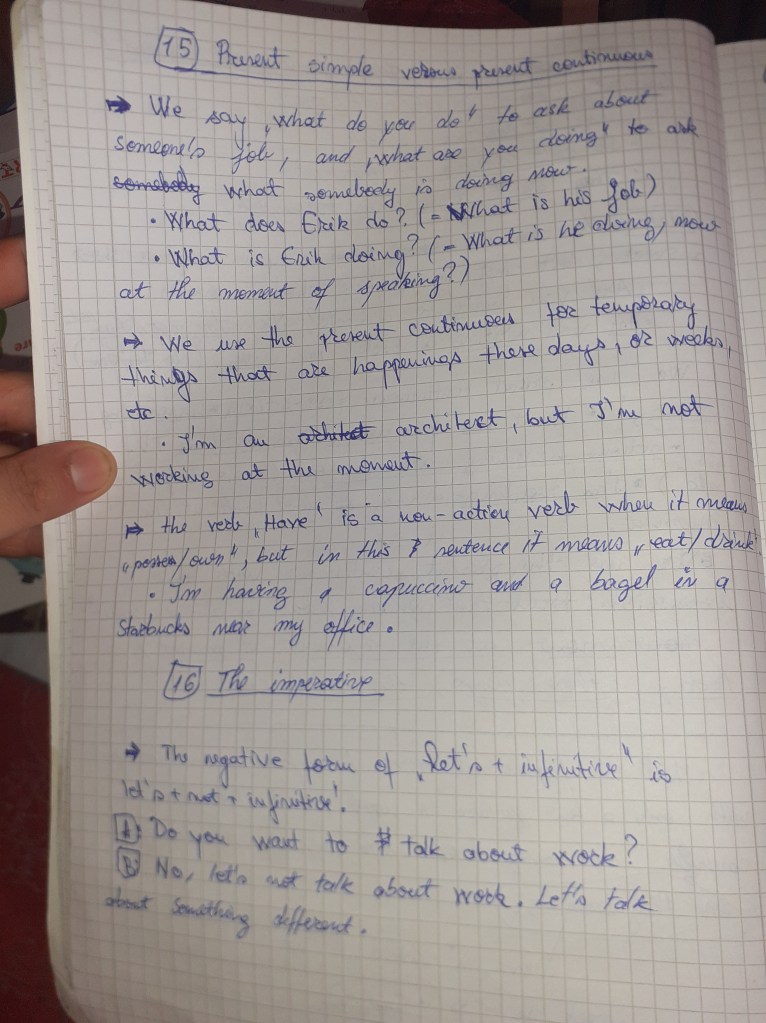 15 Present simple versous present continuous
→ We say „what do you do" to ask about
someone's job, and „what are you doing" to ask
somebody what somebody is doing now.
• What does Erik do? (= What is his job)
• What is Erik doing? (= What is he doing, now
at the moment of speaking?)
→ We use the present continuous for temporary
things that are happenings these days, or weeks,
etc.
• I'm an architect architect, but I'm not
working at the moment.
→ the verb „Have" is a non-action verb when it means
„possess/own", but in this sentence it means „eat/drink".
• I'm having a capuccino and a bagel in a
Starbucks near my office.
16 The imperative
→ The negative form of „let's + infinitive" is
let's + not + infinitive'.
A Do you want to talk about work?
B No, let's not talk about work. Let's talk
about something different.